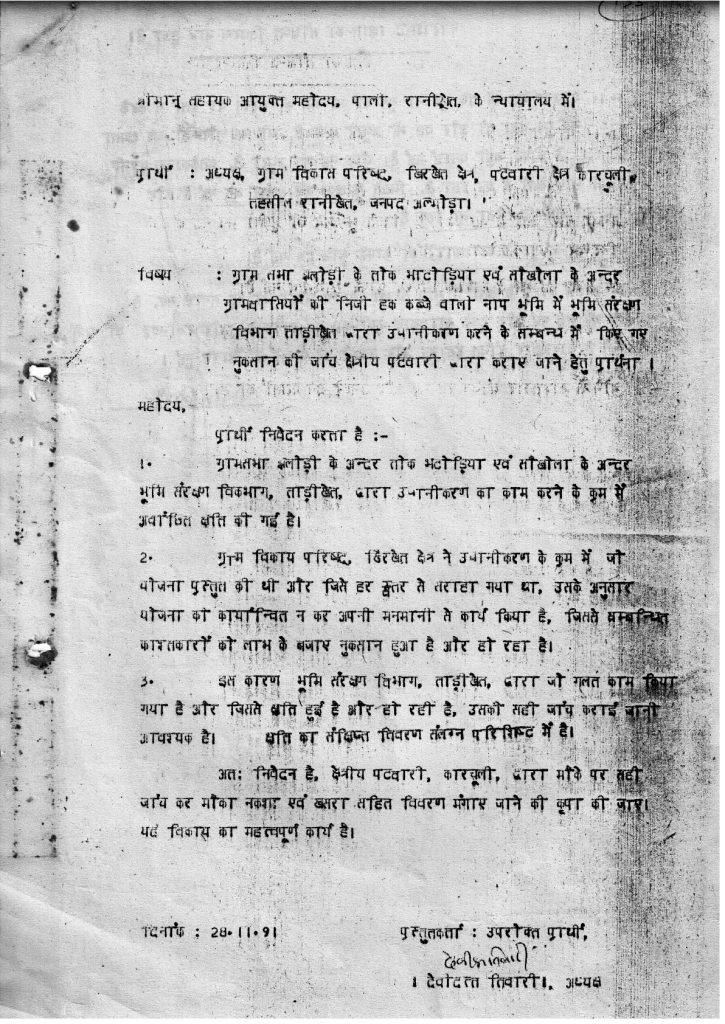 श्रीमान् सहायक आयुक्त महोदय, पाली, रानीखेत, के न्यायालय में।
प्रार्थी : अध्यक्ष, ग्राम विकास परिषद, खिरखेत क्षेत्र, पटवारी क्षेत्र कारचूली,
तहसील रानीखेत, जनपद अल्मोड़ा।
विषय : ग्राम सभा के तोक भाटोड़िया एवं सीखोला के अन्दर
ग्रामवासियों की निजी हक कब्जे वाली नाप भूमि में भूमि संरक्षण
विभाग ताड़ीखेत द्वारा उद्यानीकरण करने के सम्बन्ध में किए गए
नुकसान की जांच क्षेत्रीय पटवारी द्वारा कराए जाने हेतु प्रार्थना ।
महोदय,
प्रार्थी निवेदन करता है :-
1. ग्रामसभा के अन्दर तोक भटोड़िया एवं सीखोला के अन्दर
भूमि संरक्षण विकभाग, ताड़ीखेत, द्वारा उद्यानीकरण का काम करने के क्रम में
अवांछित क्षति की गई है।
2. ग्राम विकाय परिषद, खिरखेत क्षेत्र ने उद्यानीकरण के क्रम में जो
योजना प्रस्तुत की थी और जिसे हर स्तर से सराहा गया था, उसके अनुसार
योजना को कार्यान्वित न कर अपनी मनमानी से कार्य किया है, जिससे सम्बन्धित
काश्तकारों को लाभ के बजाए नुकसान हुआ है और हो रहा है।
3. इस कारण भूमि संरक्षण विभाग, ताड़ीखेत, द्वारा जो गलत काम किया
गया है और जिससे क्षति हुई है और हो रही है, उसकी सही जांच कराई जानी
आवश्यक है। क्षति का संक्षिप्त विवरण संलग्न परिशिष्ट में है।
अतः निवेदन है, क्षेत्रीय पटवारी, कारचूली, द्वारा मौके पर सही
जांच कर मौका नक्शा एवं खसरा सहित विवरण मंगाए जाने की कृपा की जाए।
यह विकास का महत्वपूर्ण कार्य है।
दिनांक : 28.11.91 प्रस्तुतकर्ता : उपरोक्त प्रार्थी,
। देवीदत्त तिवारी।, अध्यक्ष